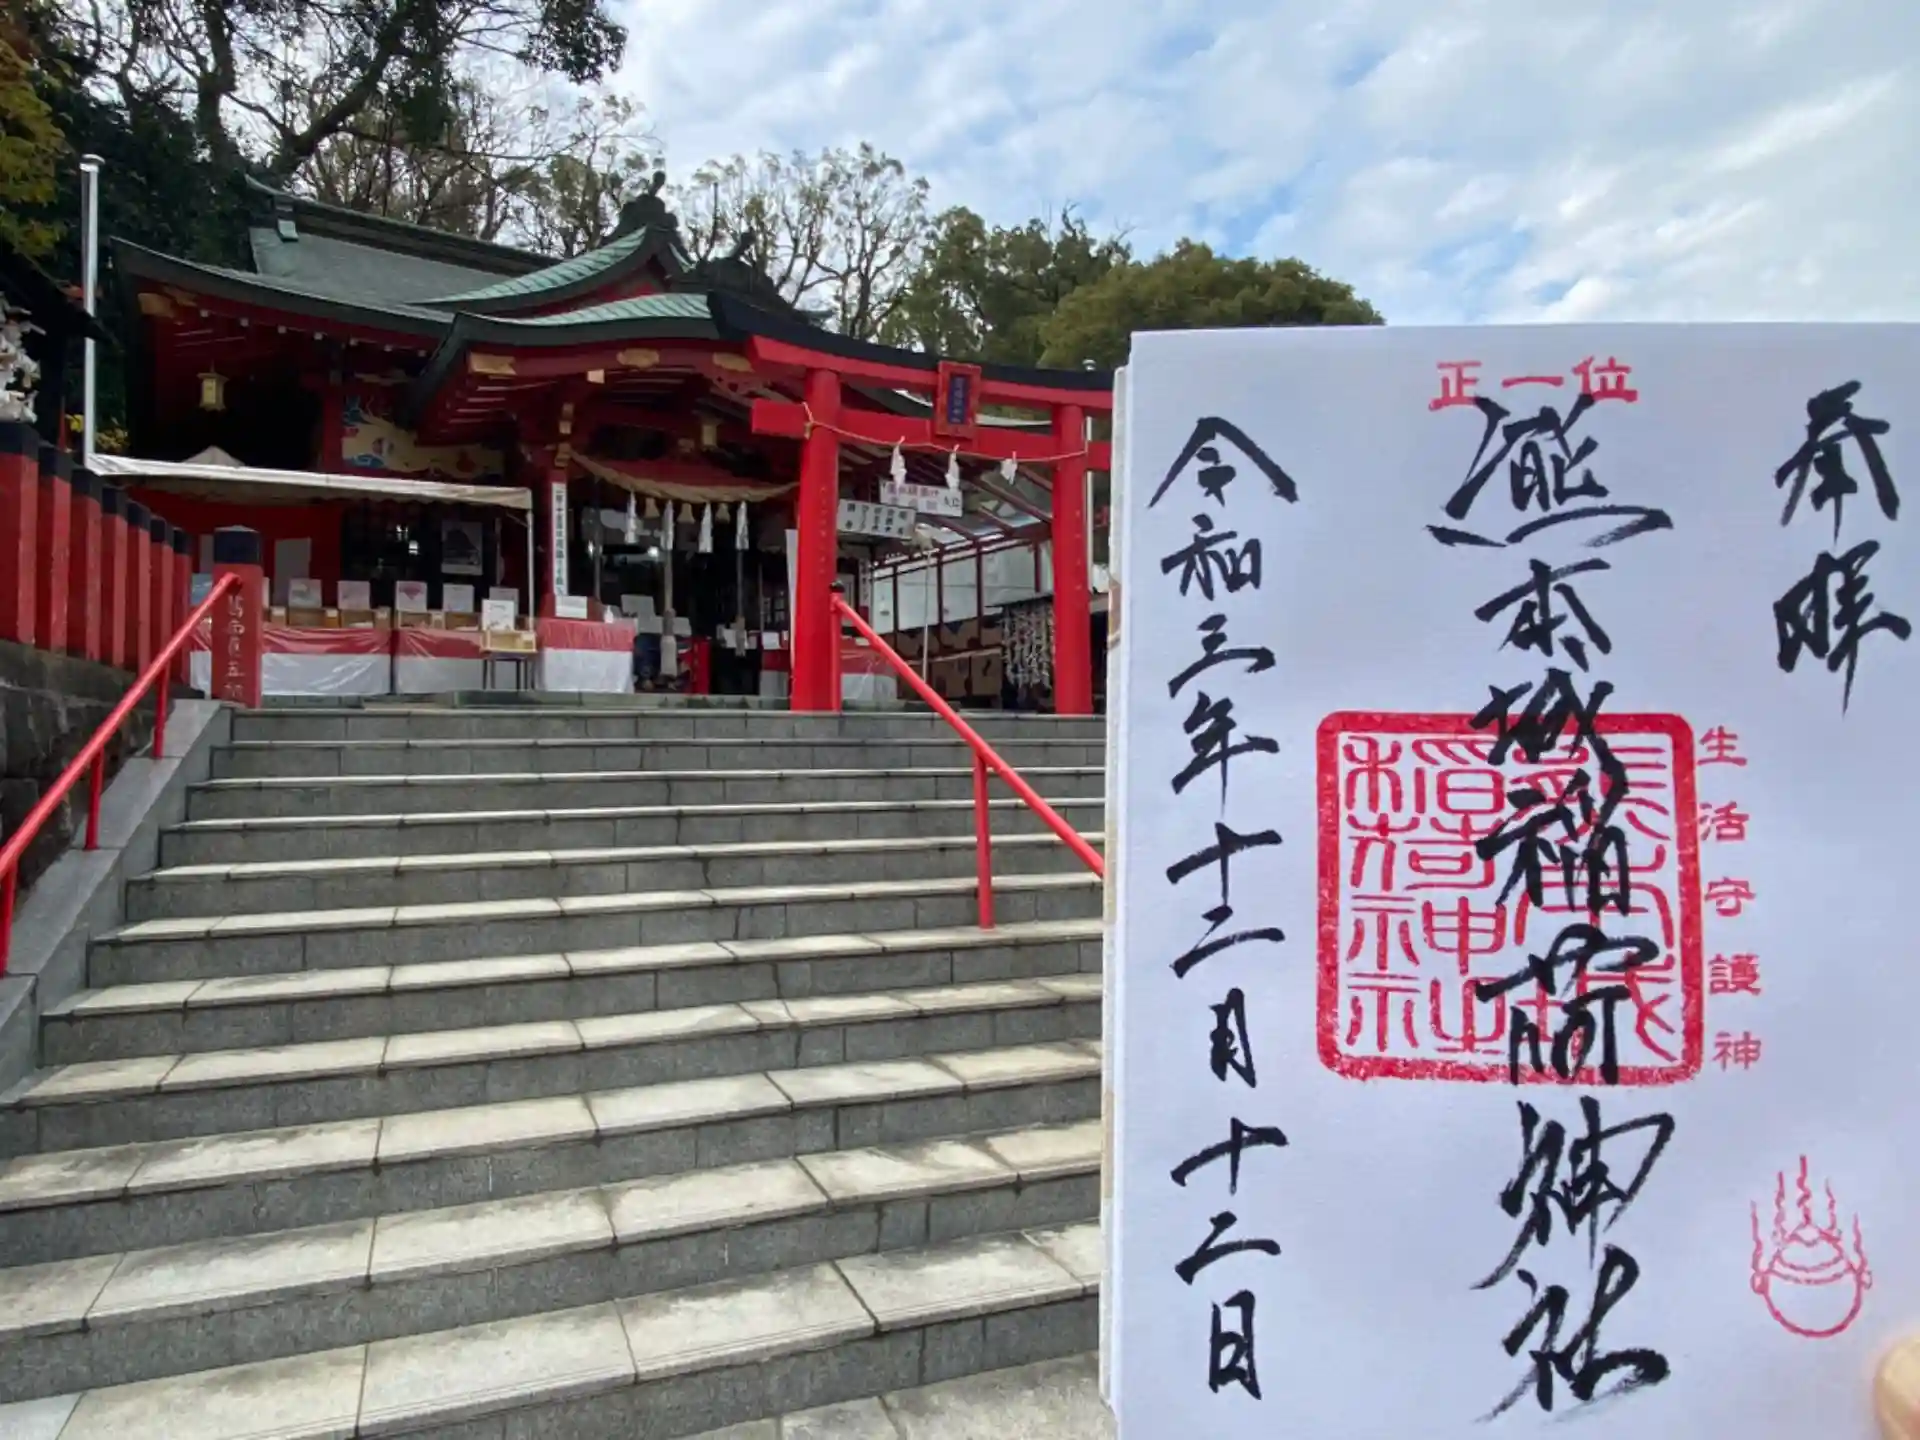 奉拝
正一位
熊本城稲荷神社
生活守護神
熊本城
稲荷神社
令和三年十二月十二日